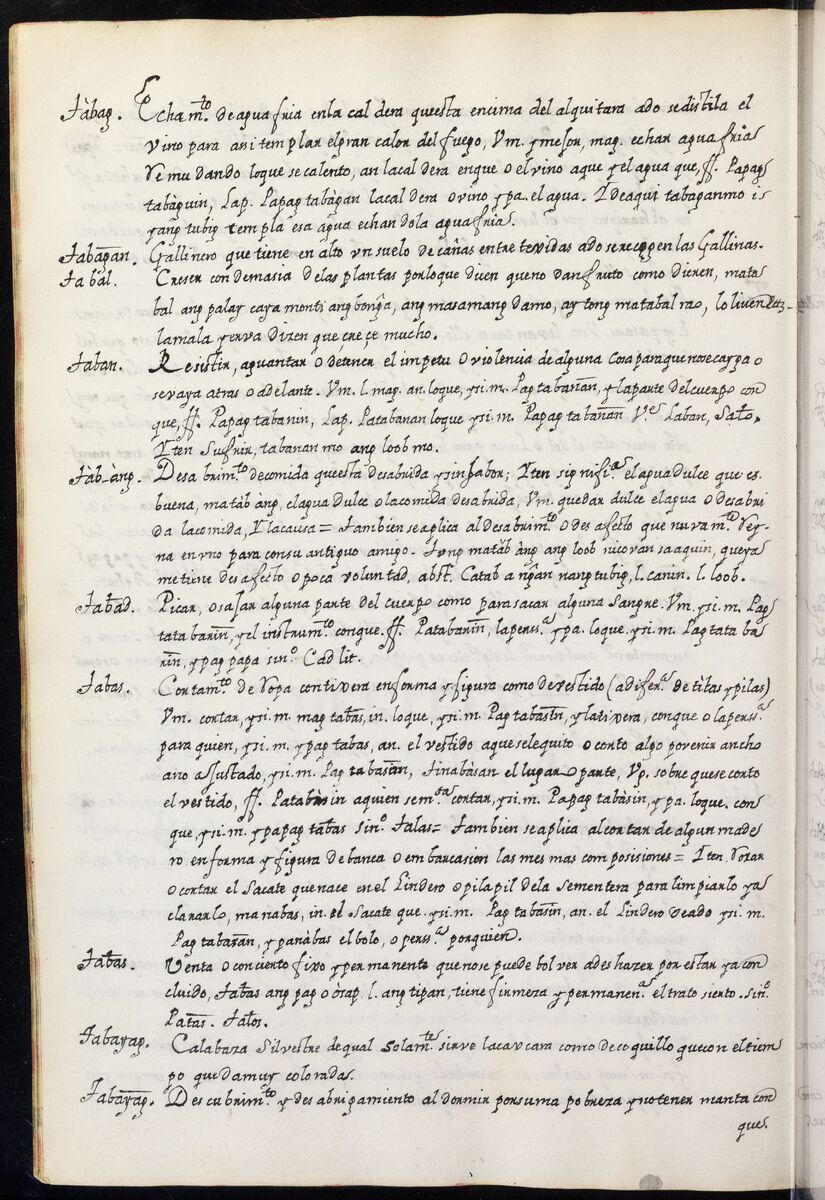 Tàbag. Echam.to de agua fria en la caldera que esta encima del alquitara ado sedistila el
vino para asi templar el gran calor del fuego, Vm. y mesor, mag. echar agua fria
Ve mudando loque se calento, an la caldera enque o el vino aque y el agua que, ff. Papag
tabàguin, Lap. Papag tabàgan la caldera o vino y pa.. el agua. I de aqui tabaganmo is
yang tubig templa esa agua echandola agua fria.
Tabagan. Gallinero que tiene en alto vn suelo de cañas entretexidas ado serecogen las Gallinas.
Tabal. Creser con demasia de las plantas porloque dicen queno dan fruto como dicen, mata
bal ang palay caya monti ang bonga, ang masamang damo, ay tong matabal na, lo
la mala yerva dizen que, creçe mucho.
Taban. Resistir, aguantar o detener el impetu o violencia de alguna cosa paraque nose cayga o
sevaya atras o adelante. Vm. l. mag. an. loque, ysi.m. Pag tabanan, y la parte del cuerpo con
que, ff. Papag tabanin, Lap. Patabanan loque ysi.m. Papag tabanan V.e Laban, Salo,
Yten Sufrir, tabanan mo ang loob mo.
Tàb-àng. Desabrim.to de comida questa desabrida y sin sabor; Yten signifi.a el agua dulce que es
buena, matàb àng, el agua dulce o la comida desabrida, Vm. quedar dulce el agua o desabri
da la comida, Y la causa = Tambien se aplica al desabrim.to o desafecto que nuvam.te Rey-
na en vno para con su antiguo amigo. matàb àng ang loob nicoyan saaquin, que ya
me tiene desafecto o poca voluntad, abst. Catab angan nang tubig, l. canin. l. loob.
Tabad. Picar, o sasar alguna parte del cuerpo como para sacar alguna Sangre. Vm. ysi.m. Pag
tata barin, y el instrum.to conque. ff. Patabarin, la perss.a y pa. loque, ysi.m. Pag tata ba
rin, y pag papa sin.o Cadlit.
Tabas. Cortam.to de Ropa con tixera en forma y figura como de vestido (a difer.a de tilas y pilas)
Vm. cortar, ysi.m. mag tabas, in. loque, ysi.m. Pag tabasin, y la tixera, conque o la perss.a
para quien, ysi.m. y pag tabas, an. el vestido aque sele quito o corto algo por venir ancho
ano ajustado, ysi.m. Pag tabasan, tinabàsan el lugar o parte, Vg. sobre que se corto
el vestido, ff. Patabàsin a quien se m.da cortar, ysi.m. Papag tabàsin, y pa. loque. con
que, ysi.m. y papag tabas sin.o Talas = Tambien se aplica al cortar de algun made
ro en forma y figura de banca o embarcasion las mesmas composisiones = Yten Rozar
o cortar el Sacate que nace en el Lindero o pilapil de la sementera para limpiarlo y a
clararlo, manabas, in. el Sacate que. ysi.m. Pag tabasin, an. el Lindero ysi.m.
Pag tabasan, y panàbas el bolo, o perss.a por quien.
Tabas. Venta o concierto fixo y permanente que no se puede bolver a deshazer por estar ya con
cluido, Tabas ang pag oòsap. l. ang tipan, tiene firmeza y permanen.a el trato siento. sin.o
Patas. Talos.
Tabayag. Calabaza Silvestre de qual Solam.te sirve la caxcara como de coquillo quecon el tiem
po queda muy colorada.
Tabayag. Descubrim.to y desabrigamiento al dormir por suma pobreza y no tener manta con
que.